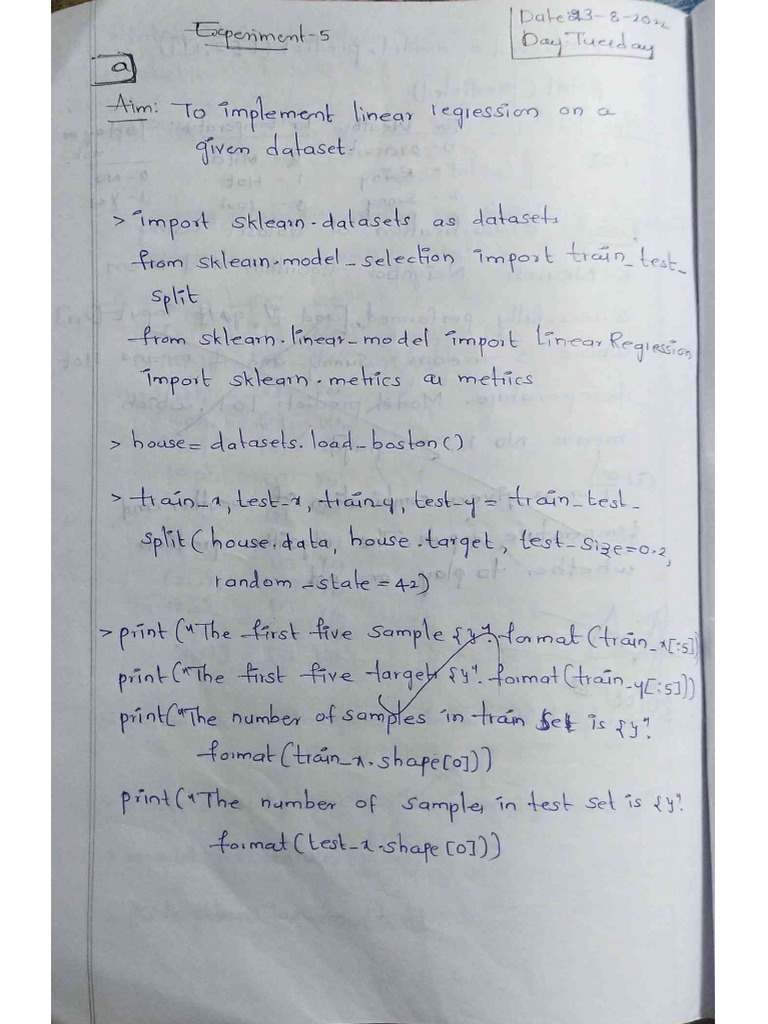 Experiment-5
Date: 23-8-2022
Day: Tuesday
a
Aim: To implement linear regression on a
given dataset.
> import sklearn.datasets as datasets
from sklearn.model_selection import train_test_
split
from sklearn.linear_model import LinearRegression
import sklearn.metrics as metrics
> house = datasets.load_boston()
> train_x, test_x, train_y, test_y = train_test_
split(house.data, house.target, test_size=0.2,
random_state=42)
> print("The first five sample {}".format(train_x[:5])
print("The first five target {}".format(train_y[:5]))
print("The number of samples in train set is {}".
format(train_x.shape[0]))
print("The number of samples in test set is {}".
format(test_x.shape[0]))